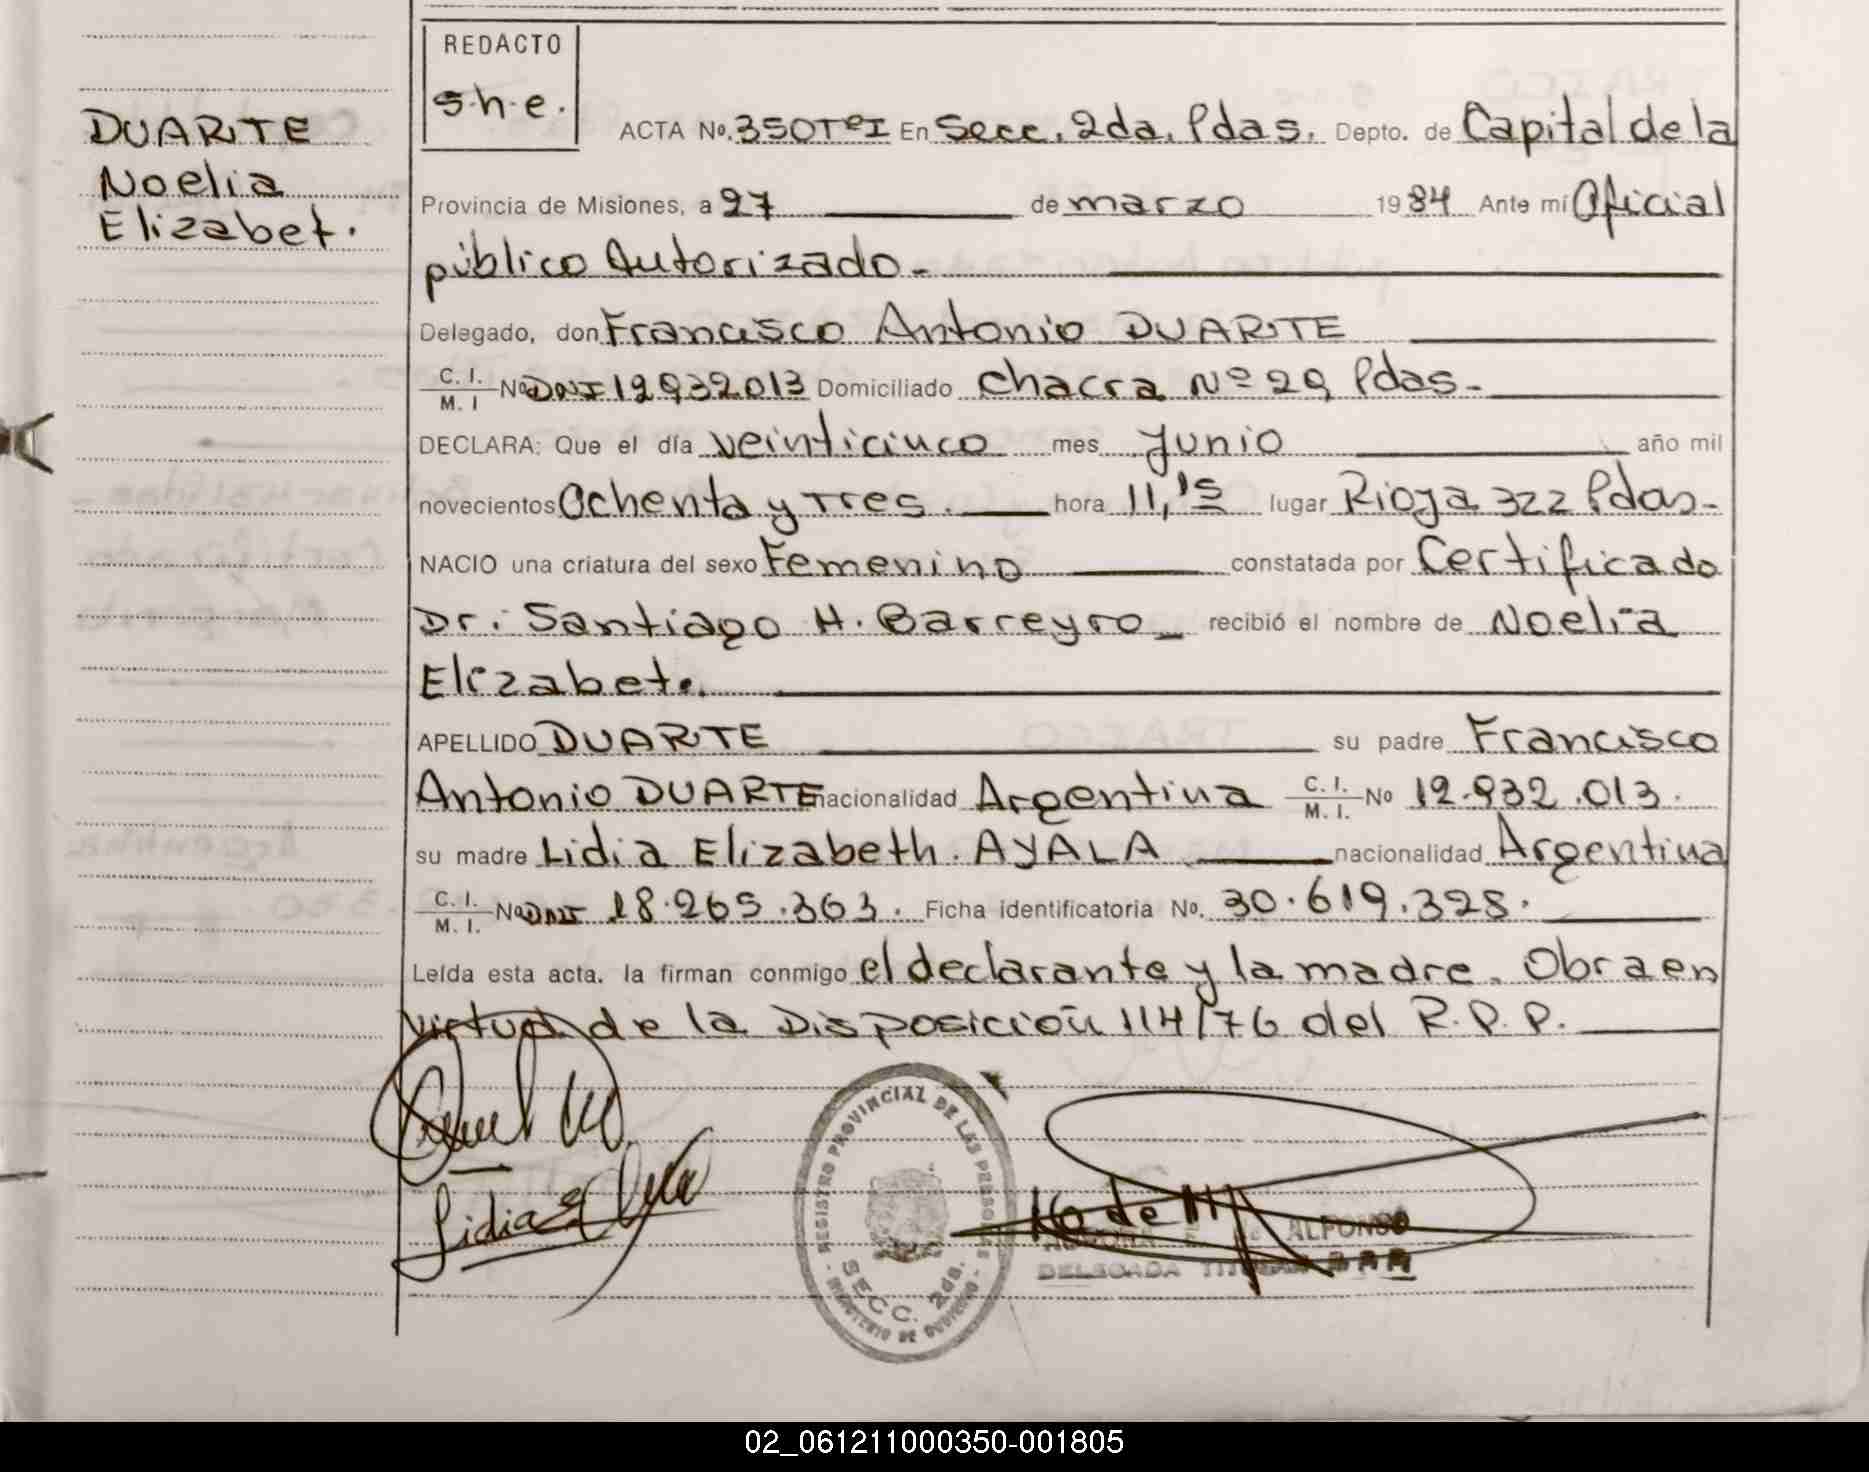 REDACTO
s.h.e.
DUARTE
Noelia
Elizabet.
ACTA No. 350 TºI En Secc. 2da. Pdas. Depto. de Capital de la
Provincia de Misiones, a 27 de marzo 1984 Ante mí Oficial
público Autorizado.-
Delegado, don Francisco Antonio DUARTE
C. I. / M. I No DNI 12932013 Domiciliado Chacra Nº 29 Pdas.-
DECLARA: Que el día veinticinco mes Junio año mil
novecientos Ochenta y Tres. hora 11,15 lugar Rioja 322 Pdas.-
NACIO una criatura del sexo Femenino constatada por Certificado
Dr: Santiago H. Barreyro_ recibió el nombre de Noelia
Elizabet.
APELLIDO DUARTE su padre Francisco
Antonio DUARTE nacionalidad Argentina C. I. / M. I. No 12.932.013.
su madre Lidia Elizabeth. AYALA nacionalidad Argentina
C. I. / M. I. No DNI 18.265.363. Ficha identificatoria No. 30.619.328.
Leída esta acta. la firman conmigo el declarante y la madre. Obra en
virtud de la Disposición 114/76 del R.P.P.
Lidia E
REGISTRO PROVINCIAL DE LAS PERSONAS
SECC. 2da.
- MINISTERIO DE GOBIERNO -
de ALFONSO
DELEGADA TITULAR
02_061211000350-001805